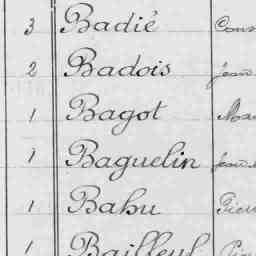 3 Badié
2 Badois Jean
1 Bagot
1 Baguelin Jean
1 Bahu
1 Bailleul